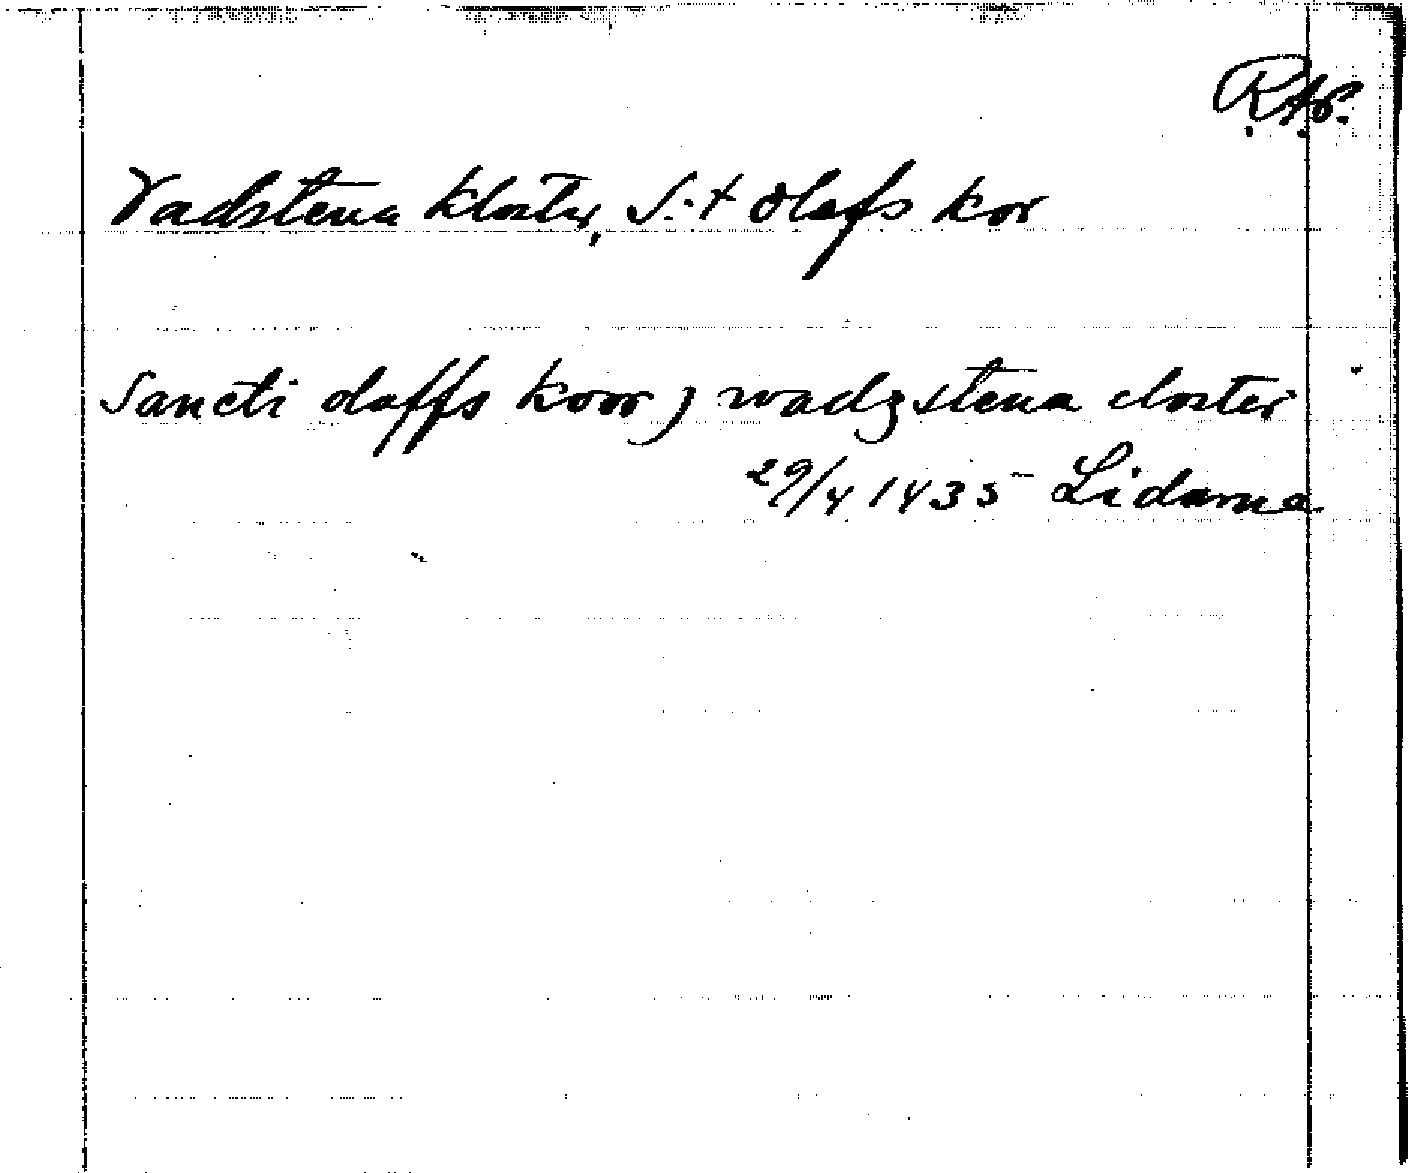 R.A.P.
Vadstena kloster, S:t Olafs kor
Sancti olaffs koor j wadzstena closter
29/4 1435 Lidarna